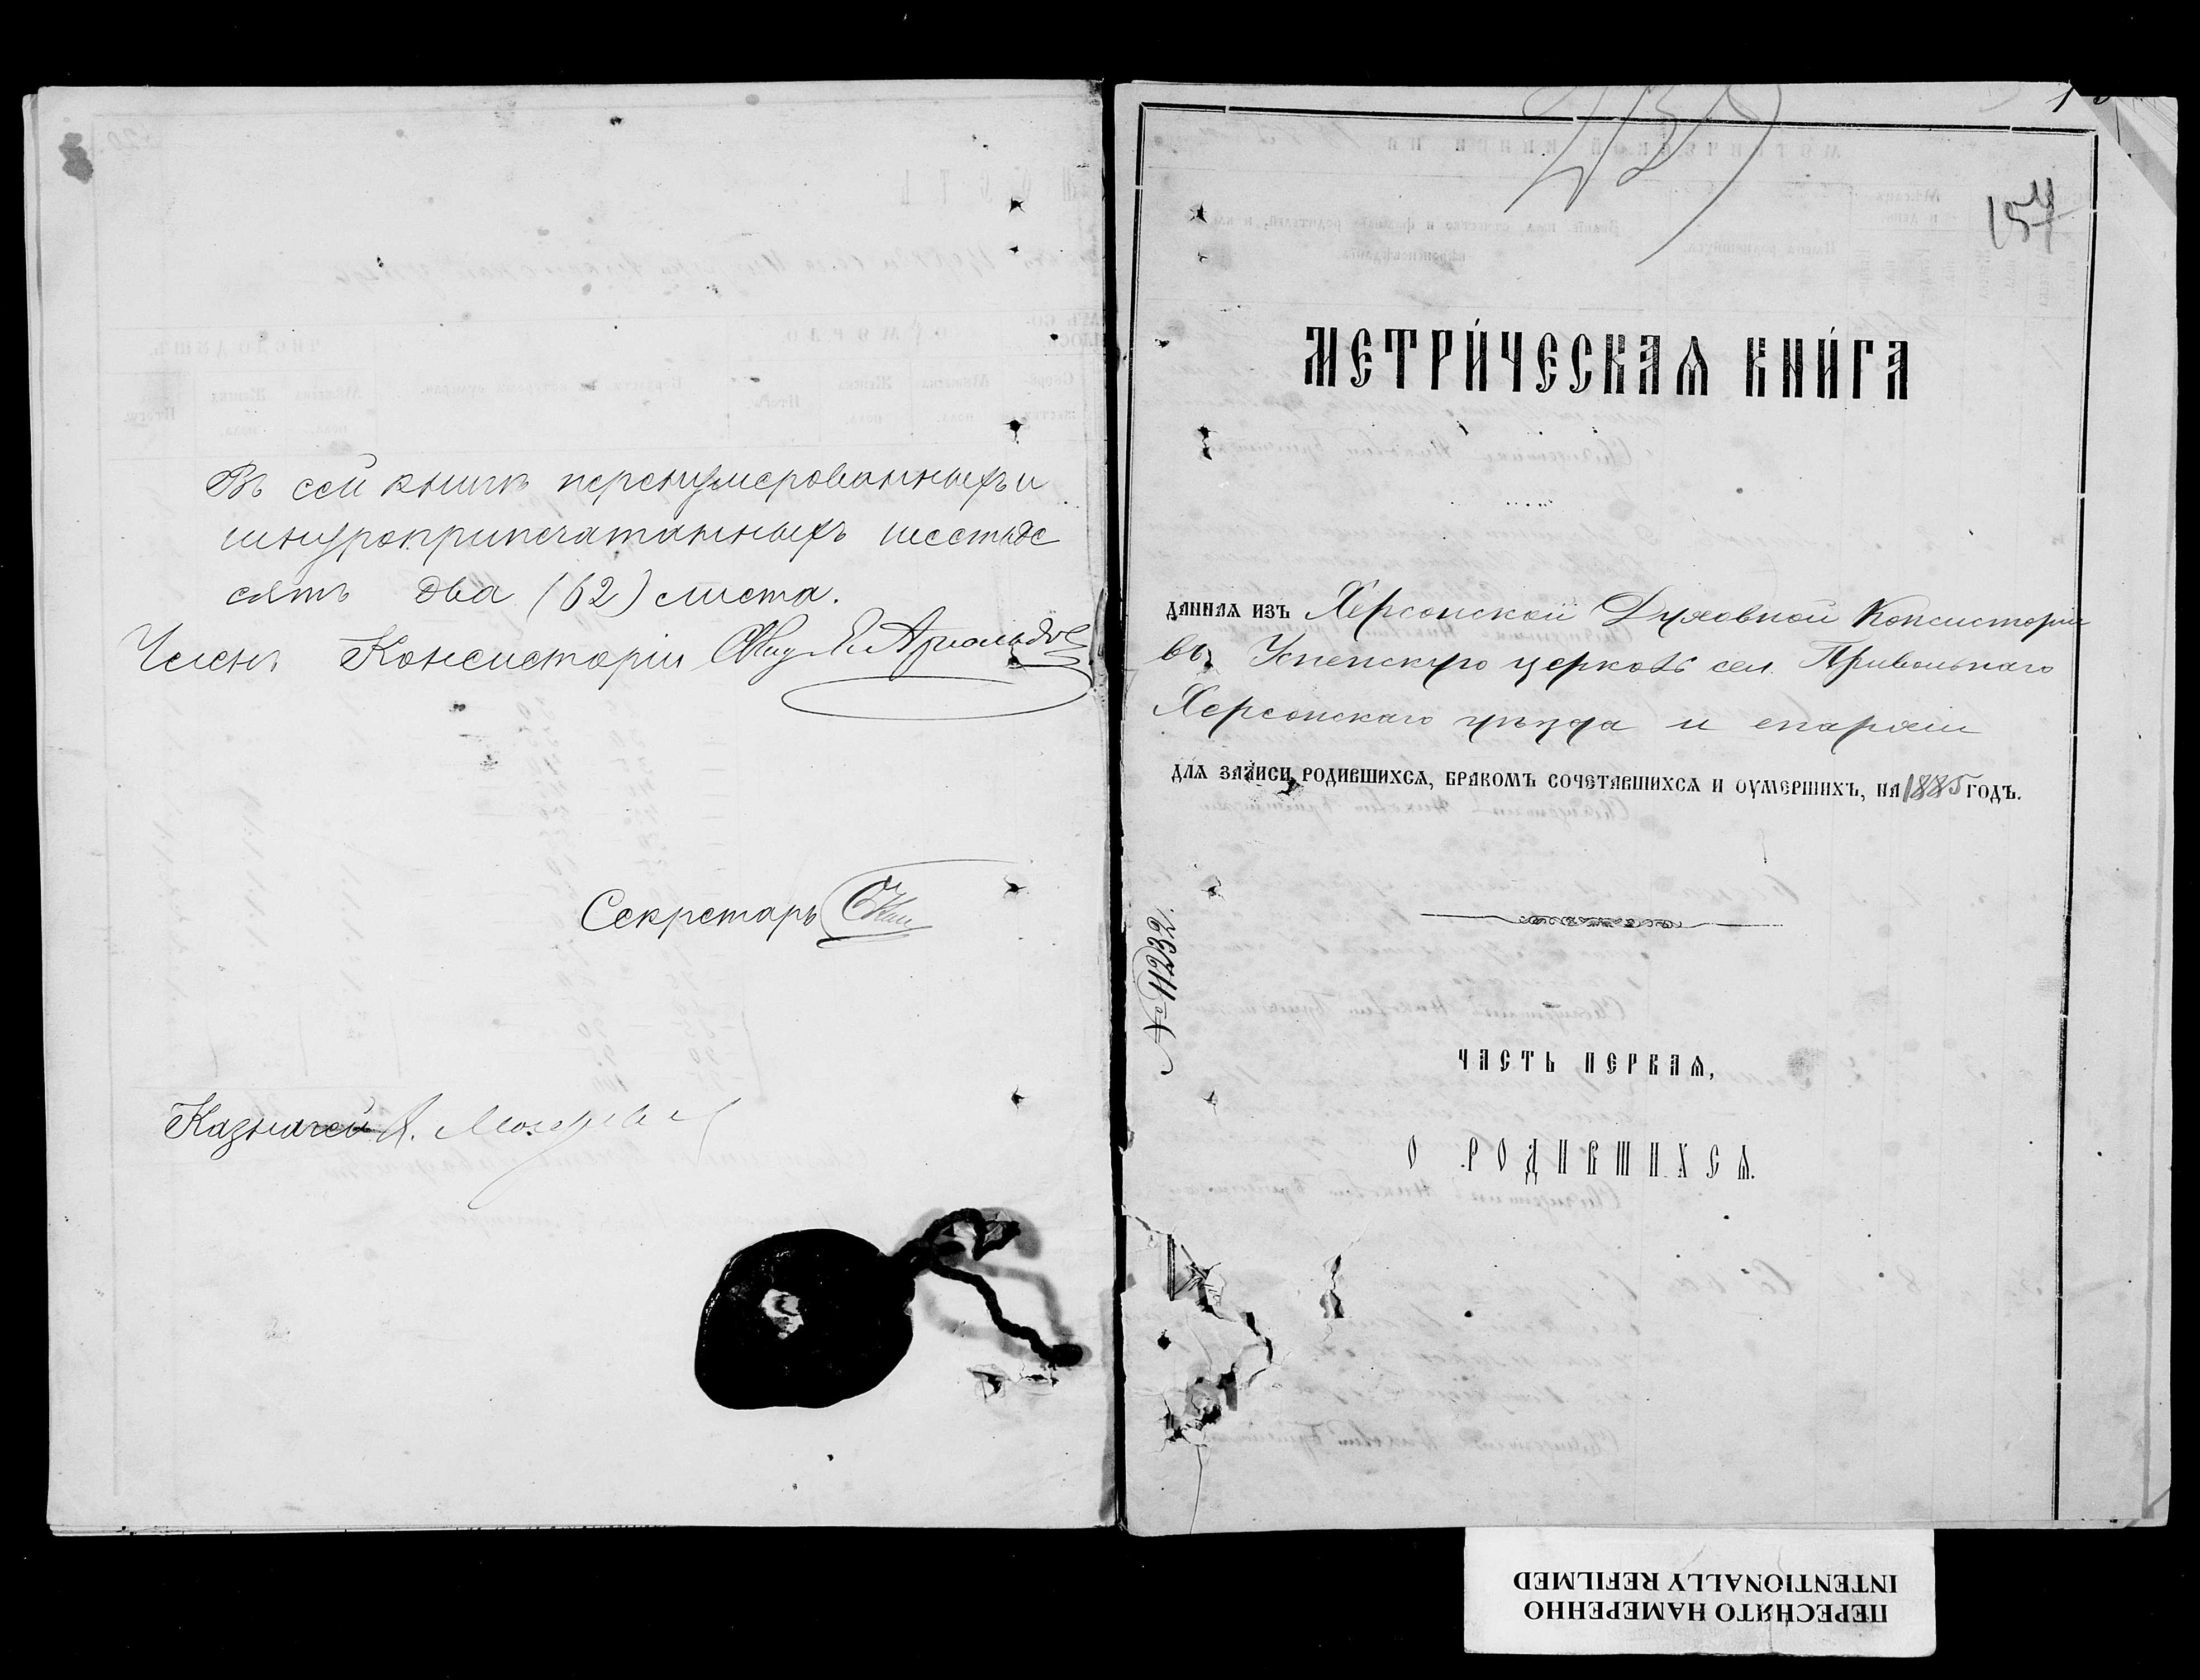 Въ сей книгѣ перенумерованныхъ и
шнуроприпечатанныхъ шестьде
сятъ два (62) листа.
Членъ Консисторіи
Секретарь
Казначей А.
157
МЕТРИ́ЧЕСКАѦ КНИ́ГА
ДАННАѦ ИЗЪ Херсонской Духовной Консисторіи
въ Успенскую церковь села Привольнаго
Херсонскаго уѣзда и епархіи
ДЛѦ ЗАПИСИ РОДИВШИХСѦ, БРАКОМЪ СОЧЕТАВШИХСѦ И ОУМЕРШИХЪ, НА 1885 ГОДЪ.
№ 11232
ЧАСТЬ ПЕРВАѦ,
О РОДИВШИХСѦ.
ПЕРЕСНЯТО НАМЕРЕННО
INTENTIONALLY REFILMED